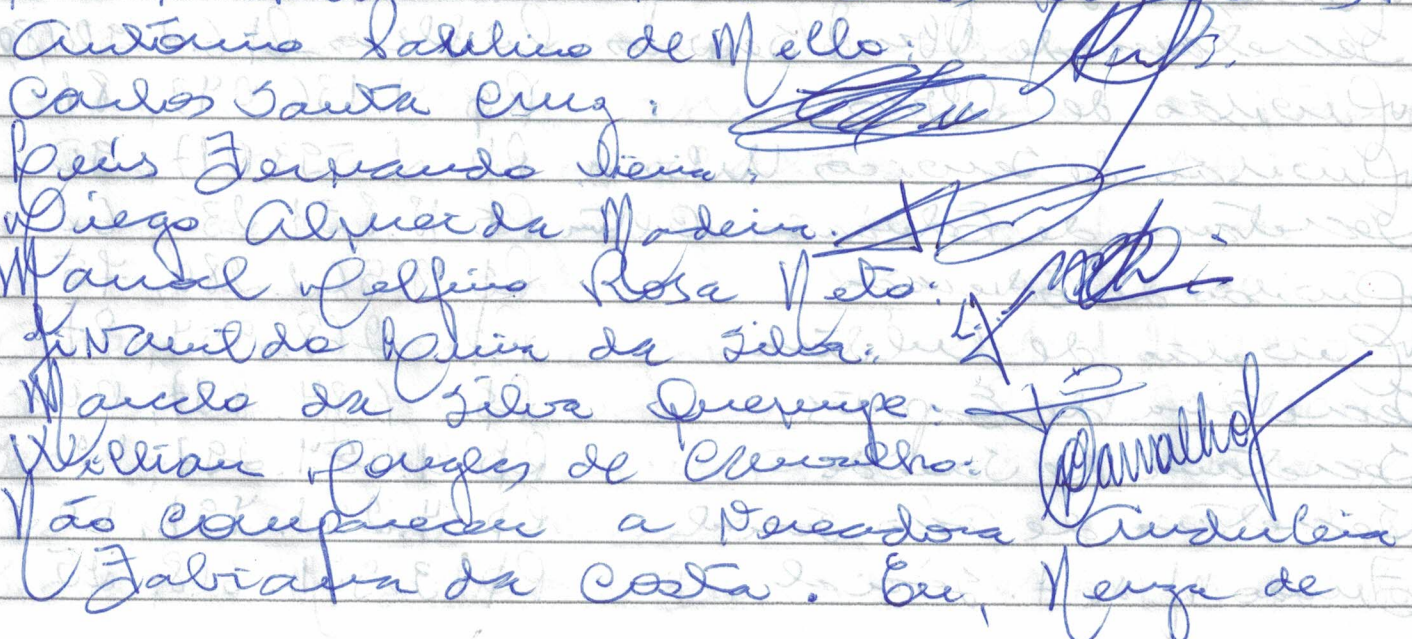 Antônio Satilino de Mello:
Carlos Santa Cruz:
Luís Fernando Vieira.
Diego Almeida Madeira.
Manoel Delfino Rosa Neto:
Givanildo da Silva:
Marcelo da Silva
Willian Borges de Carvalho: Carvalho
Não compareceu a Vereadora Andreleia
Fabiana da Costa. Eu, Neuza de